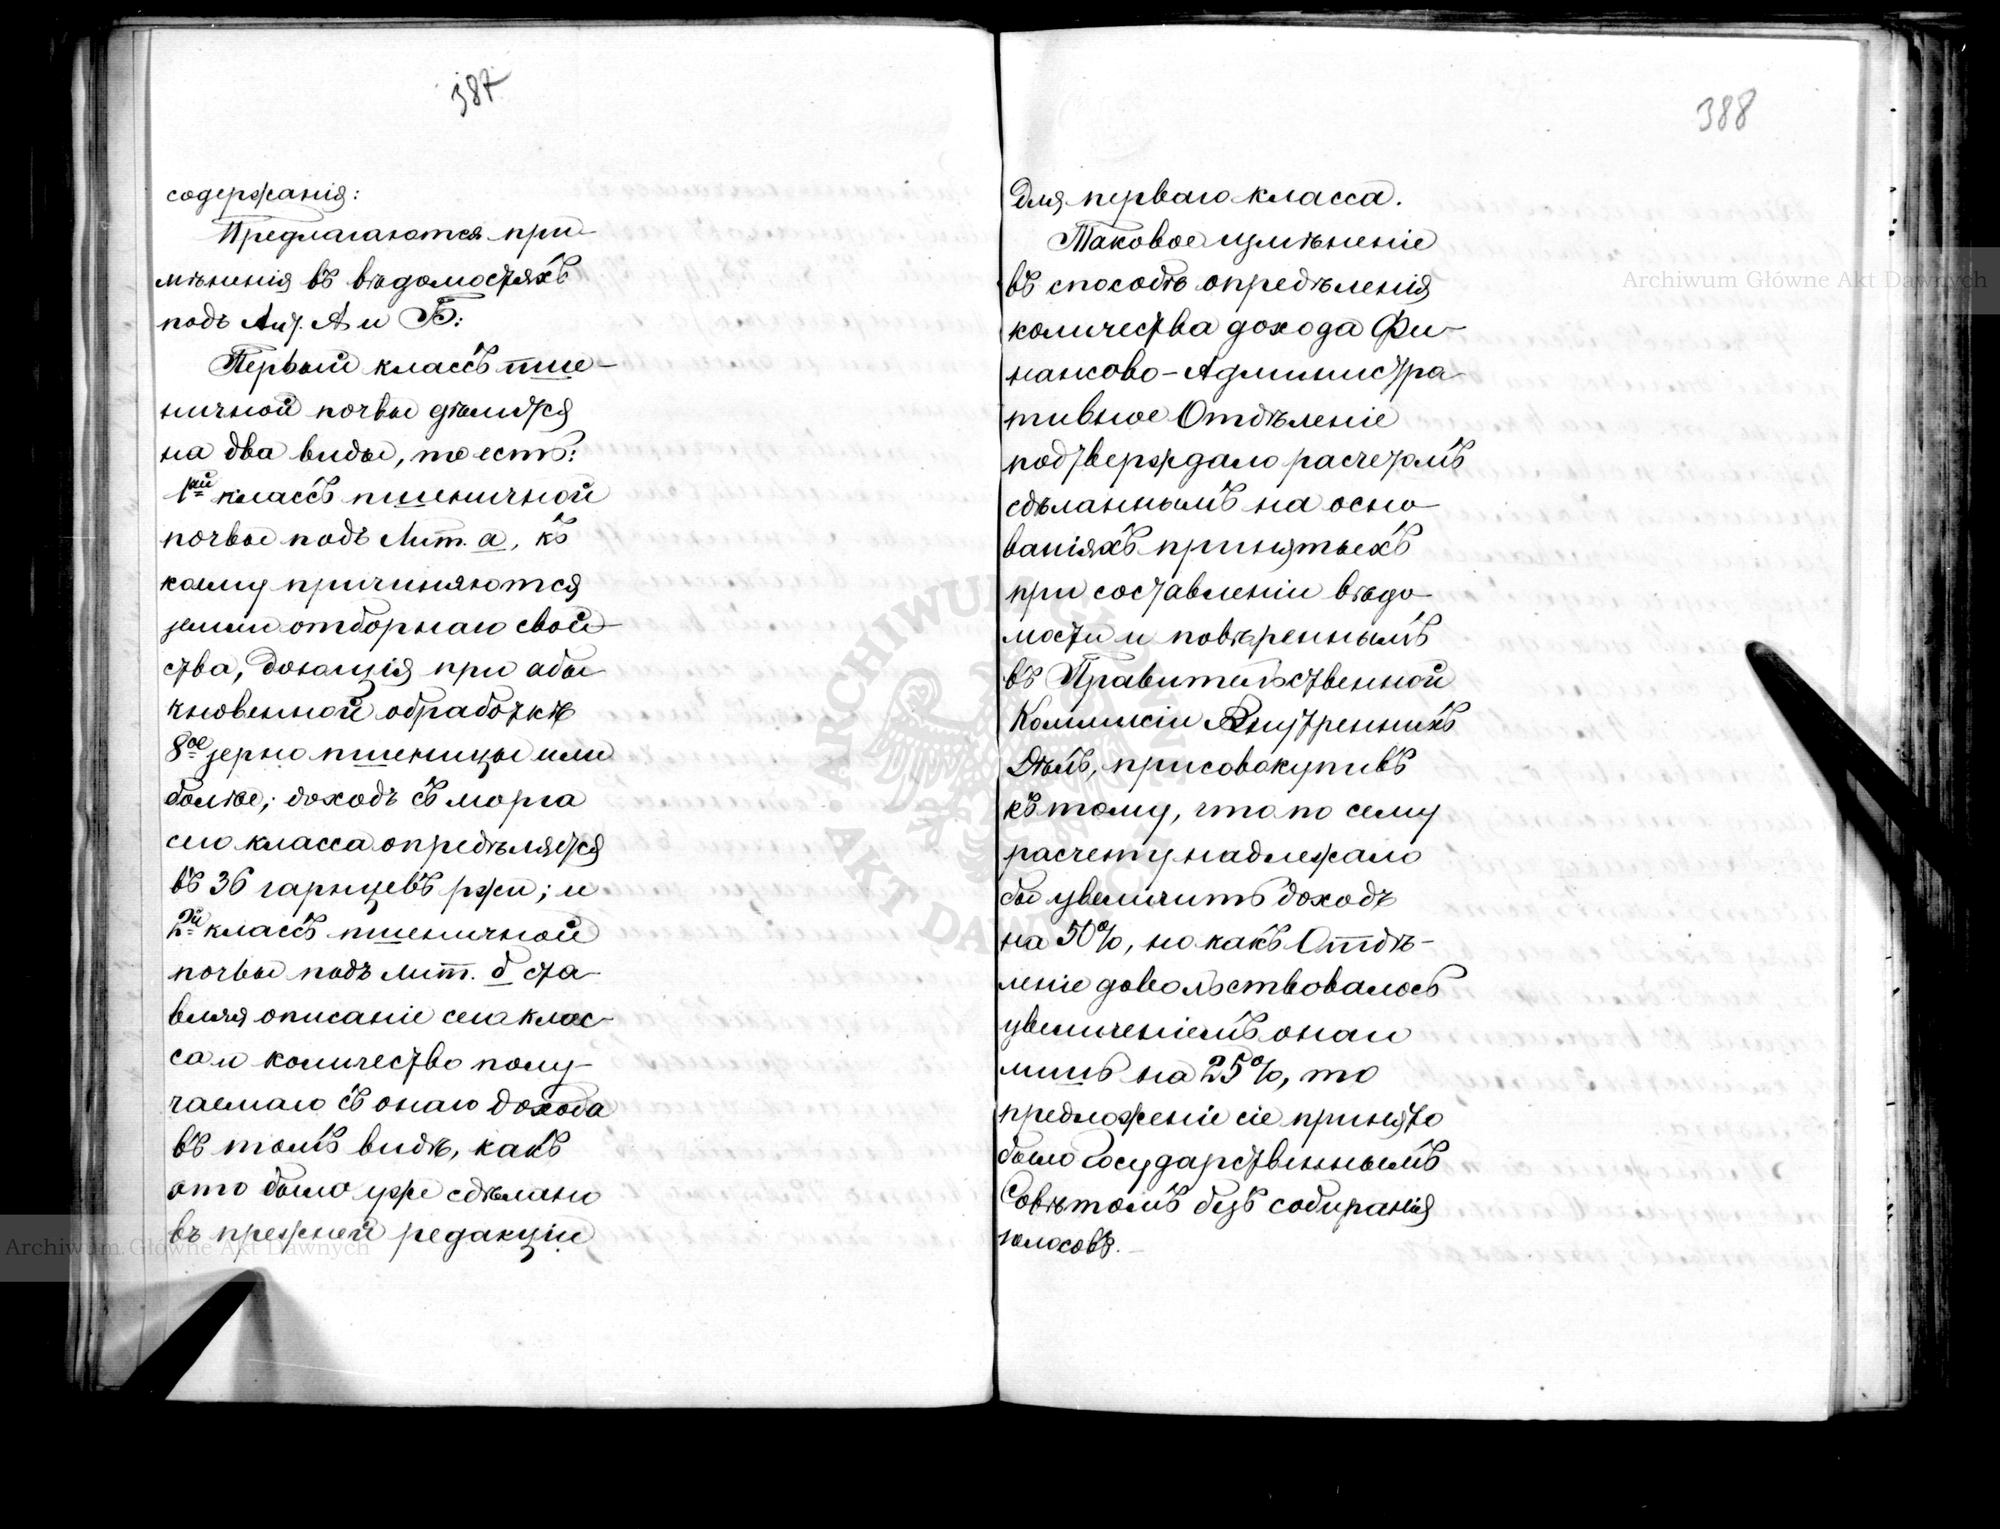 387
содержанія:
Предлагаются при-
мѣненія въ вѣдомостяхъ
подъ Лит. А и Б:
Первый классъ пше-
ничной почвы дѣлится
на два виды, то есть:
1ый классъ пшеничной
почвы подъ Лит. а, къ
коему причиняются
земли отборнаго свой-
ства, дающія при обы-
кновенной обработкѣ
8ое зерно пшеницы или
болѣе; доходъ съ морга
сего класса опредѣляется
въ 36 гарнцевъ ржи; и
2й классъ пшеничной
почвы подъ лит. б ста-
вляя описаніе сего клас-
са и количество полу-
чаемаго съ онаго дохода
въ томъ видѣ, какъ
это было уже сдѣлано
въ прежней редакціи
388
для перваго класса.
Таковое измѣненіе
въ способѣ опредѣленія
количества дохода Фи-
нансово-Администра-
тивное Отдѣленіе
подтверждало расчетомъ
сдѣланнымъ на осно-
ваніяхъ принятыхъ
при составленіи вѣдо-
мости и повѣреннымъ
въ Правительственной
Коммисіи Внутреннихъ
Дѣлъ, присовокупивъ
къ тому, что по сему
расчету надлежало
бы увеличить доходъ
на 50%, но какъ Отдѣ-
леніе довольствовалось
увеличеніемъ онаго
лишь на 25%, то
предложеніе сіе принято
было Государственнымъ
Совѣтомъ безъ собиранія
голосовъ.
Archiwum Główne Akt Dawnych
Archiwum Główne Akt Dawnych
ARCHIWUM GŁÓWNE AKT DAWNYCH